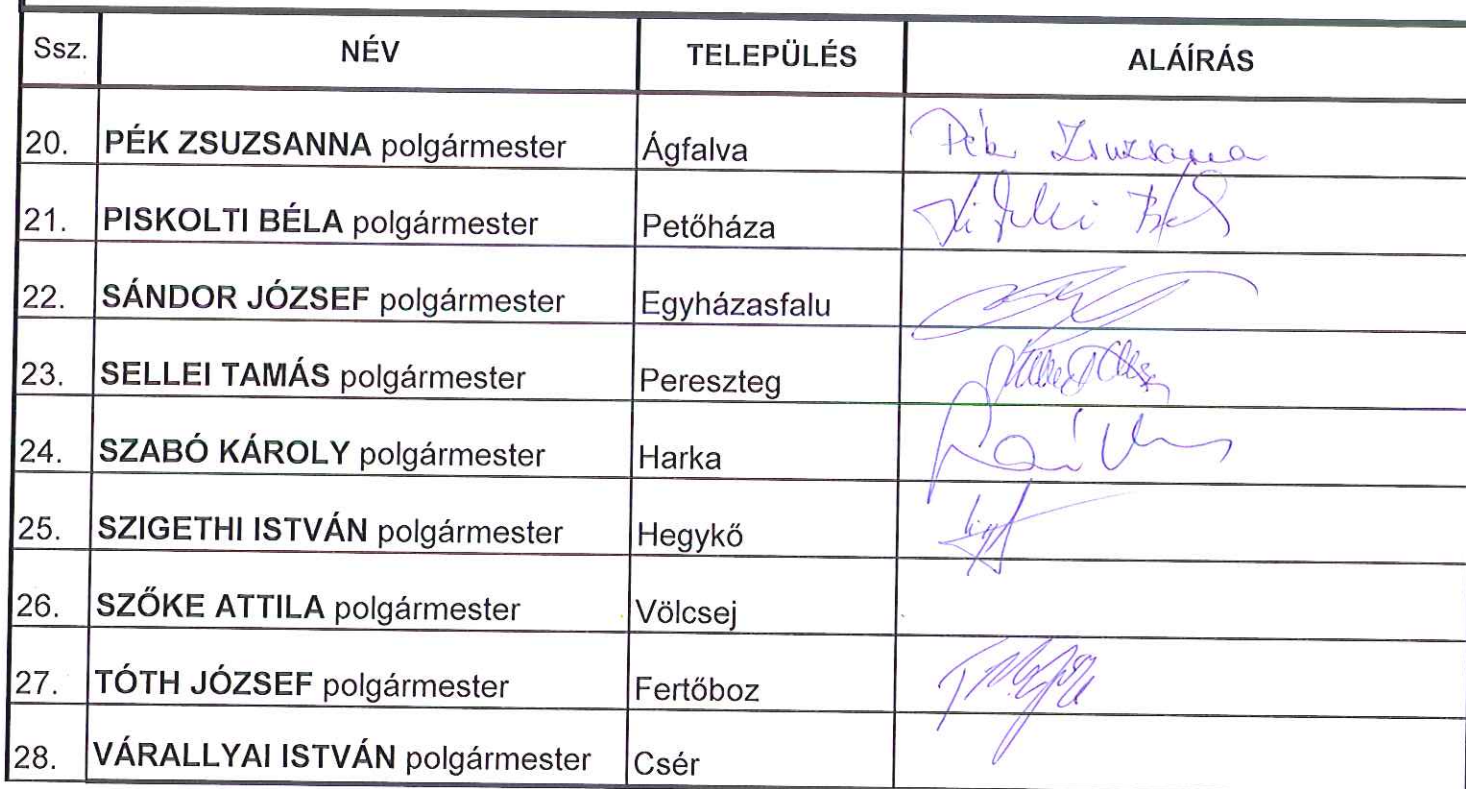 Ssz. NÉV TELEPÜLÉS ALÁÍRÁS
20. PÉK ZSUZSANNA polgármester Ágfalva Pék Zsuzsanna
21. PISKOLTI BÉLA polgármester Petőháza
22. SÁNDOR JÓZSEF polgármester Egyházasfalu
23. SELLEI TAMÁS polgármester Pereszteg
24. SZABÓ KÁROLY polgármester Harka
25. SZIGETHI ISTVÁN polgármester Hegykő
26. SZŐKE ATTILA polgármester Völcsej
27. TÓTH JÓZSEF polgármester Fertőboz
28. VÁRALLYAI ISTVÁN polgármester Csér